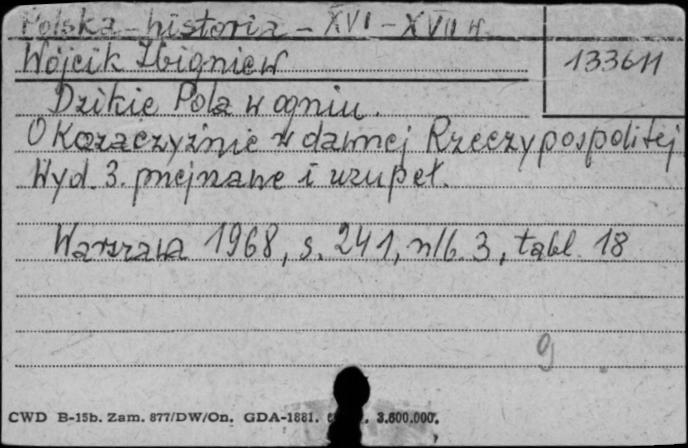 Polska - historia - XVI - XVII w.
Wójcik Zbigniew
133611
Dzikie Pola w ogniu.
O Kozaczyźnie w dawnej Rzeczypospolitej
Wyd. 3. przejrzane i uzupeł.
Warszawa 1968, s. 241, nlb. 3, tabl. 18
g
CWD B-15b. Zam. 877/DW/On. GDA-1881. 3.600.000.